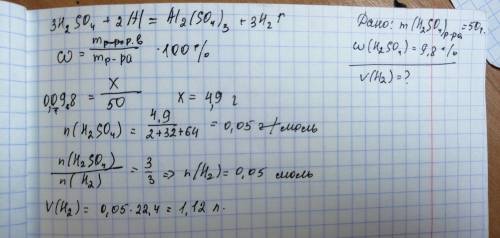 3H₂SO₄ + 2Al = Al₂(SO₄)₃ + 3H₂↑
ω = m р.в / m р-ра · 100%
0,098 = x / 50    x = 4,9 г
n(H₂SO₄) = 4,9 / 2+32+64 = 0,05 моль
n(H₂SO₄) / n(H₂) = 3/3 => n(H₂) = 0,05 моль
V(H₂) = 0,05 · 22,4 = 1,12 л.
Дано: m(H₂SO₄)р-ра = 50г.
ω(H₂SO₄) = 9,8%
V(H₂) = ?